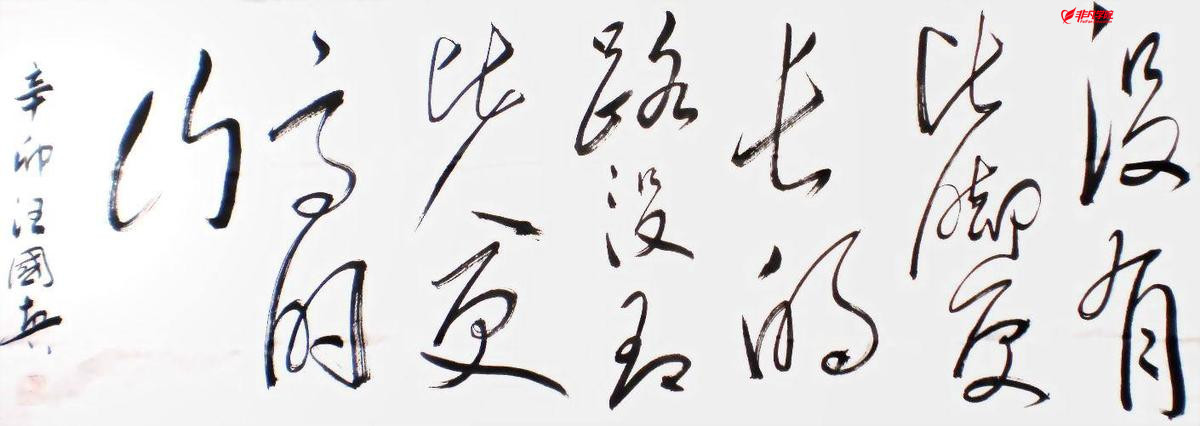 没有
比脚更
长的
路没有
比人更
高的
山
辛卯汪國真